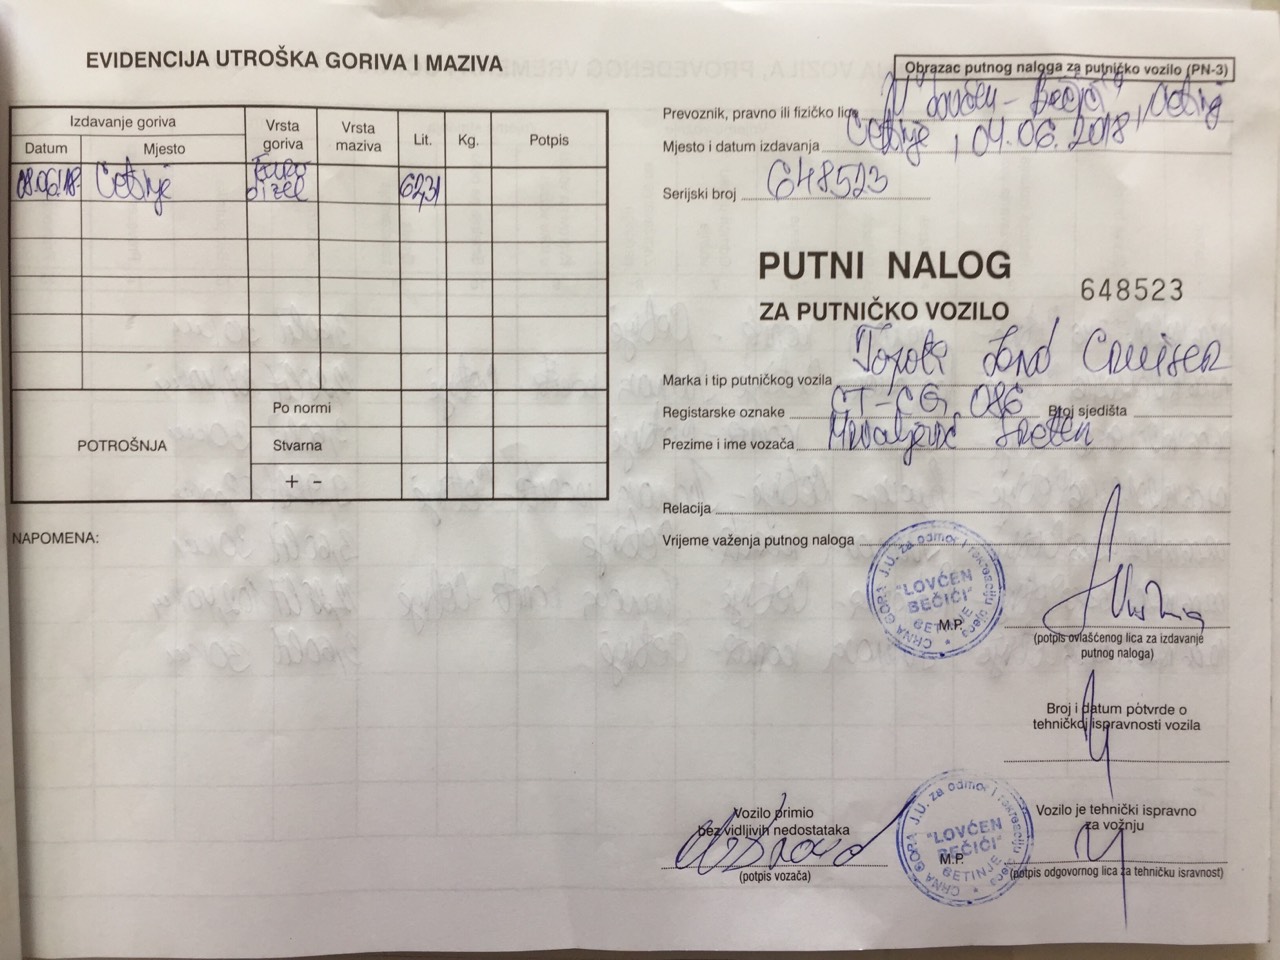 EVIDENCIJA UTROŠKA GORIVA I MAZIVA
Izdavanje goriva
Datum
Mjesto
Vrsta goriva
Vrsta maziva
Lit.
Kg.
Potpis
08.06.18. Cetinje Euro dizel 62,31
POTROŠNJA
Po normi
Stvarna
+ -
NAPOMENA:
Obrazac putnog naloga za putničko vozilo (PN-3)
Prevoznik, pravno ili fizičko lice "Lovćen - Bečići", Cetinje
Mjesto i datum izdavanja Cetinje, 04.06.2018
Serijski broj 648523
PUTNI NALOG
648523
ZA PUTNIČKO VOZILO
Marka i tip putničkog vozila Toyota Land Cruiser
Registarske oznake CT-CG 086 Broj sjedišta
Prezime i ime vozača Mrvaljević Sreten
Relacija
Vrijeme važenja putnog naloga
CRNA GORA J.U. za odmor i rekreaciju djece
"LOVĆEN
BEČIĆI"
CETINJE
M.P.
(potpis ovlašćenog lica za izdavanje
putnog naloga)
Broj i datum potvrde o
tehničkoj ispravnosti vozila
Vozilo primio
bez vidljivih nedostataka
(potpis vozača)
CRNA GORA J.U. za odmor i rekreaciju djece
"LOVĆEN
BEČIĆI"
CETINJE
M.P.
Vozilo je tehnički ispravno
za vožnju
(potpis odgovornog lica za tehničku isravnost)